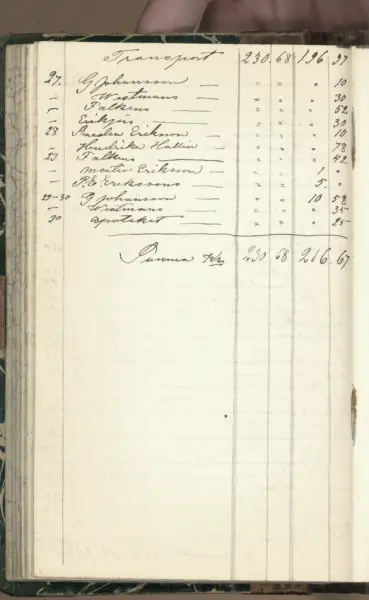 Transport 230 68 196 97
27. G Johansson — " " " 10
– Westmans — " " " 30
– Falkens — " " " 52
– Eriksons — " " " 30
28 Smeden Erikson — " " " 10
– Hendrika Hallin — " " " 78
29 Falkens — " " " 42
– mäster Erikson — " " 1 "
– P.E. Eriksons — " " 5 "
29-30 G Johansson — " " 10 58
– Westmans — " " " 35
30 apoteket — " " " 25
Summa Kr 230 68 216 67